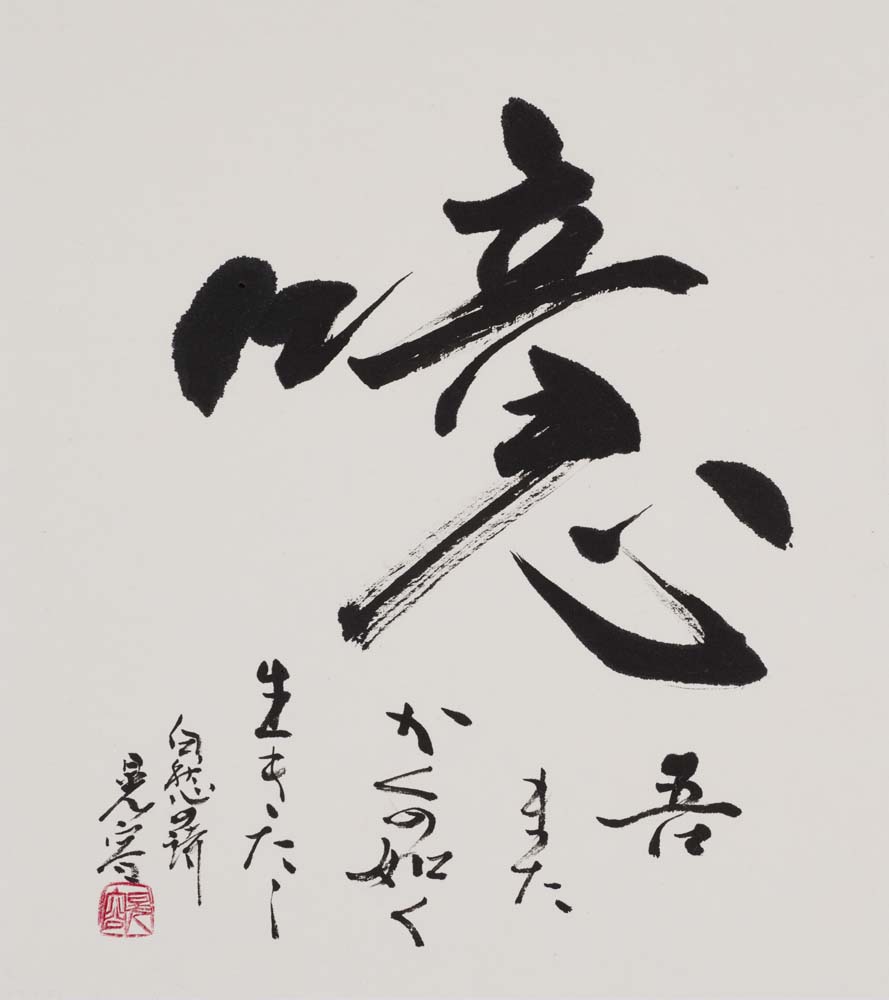 噫
吾
また
かくの如く
生きたし
自然の詩